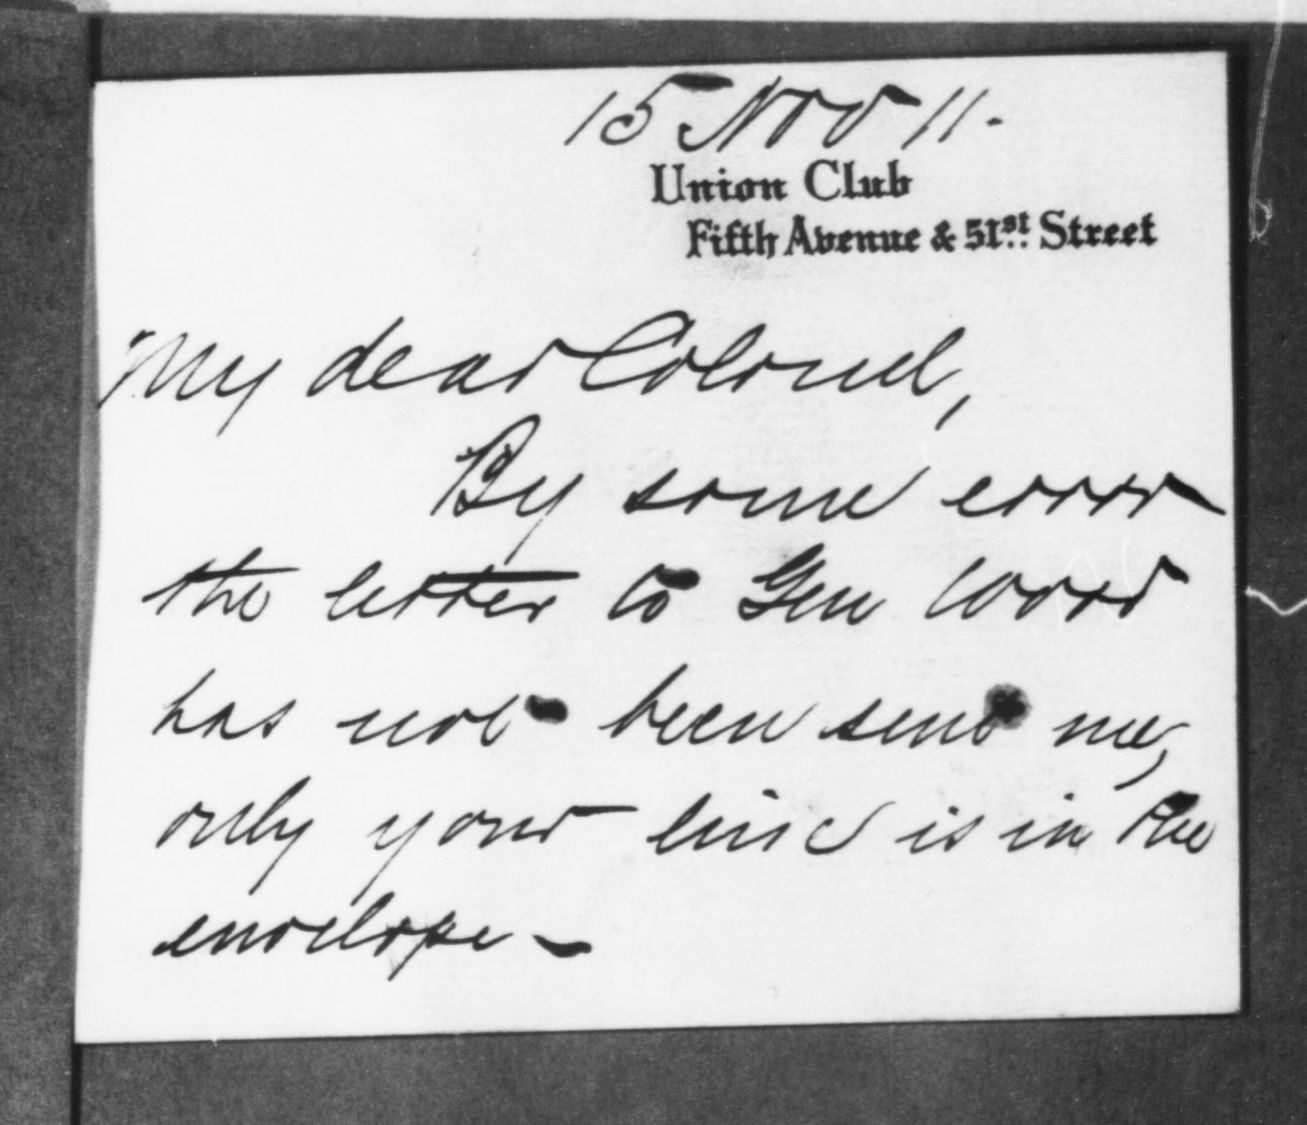 15 Nov 11.
Union Club
Fifth Avenue & 51st Street
My dear Colonel,
By some error
the letter to Gen Wood
has not been sent me,
only your line is in the
envelope -